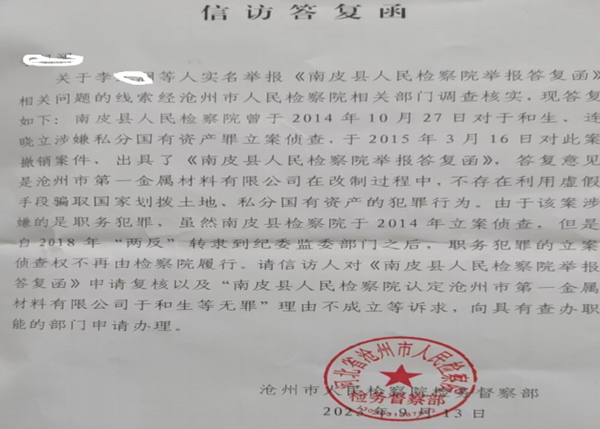 信访答复函
关于李 等人实名举报《南皮县人民检察院举报答复函》
相关问题的线索经沧州市人民检察院相关部门调查核实，现答复
如下：南皮县人民检察院曾于2014年10月27日对于和生、连
晓立涉嫌私分国有资产罪立案侦查，于2015年3月16日对此案
撤销案件，出具了《南皮县人民检察院举报答复函》，答复意见
是沧州市第一金属材料有限公司在改制过程中，不存在利用虚假
手段骗取国家划拨土地、私分国有资产的犯罪行为。由于该案涉
嫌的是职务犯罪，虽然南皮县检察院于2014年立案侦查，但是
自2018年“两反”转隶到纪委监委部门之后，职务犯罪的立案
侦查权不再由检察院履行。请信访人对《南皮县人民检察院举报
答复函》申请复核以及“南皮县人民检察院认定沧州市第一金属
材料有限公司于和生等无罪”理由不成立等诉求，向具有查办职
能的部门申请办理。
河北省沧州市人民检察院
检务督察部
沧州市人民检察院检务督察部
2023年9月13日